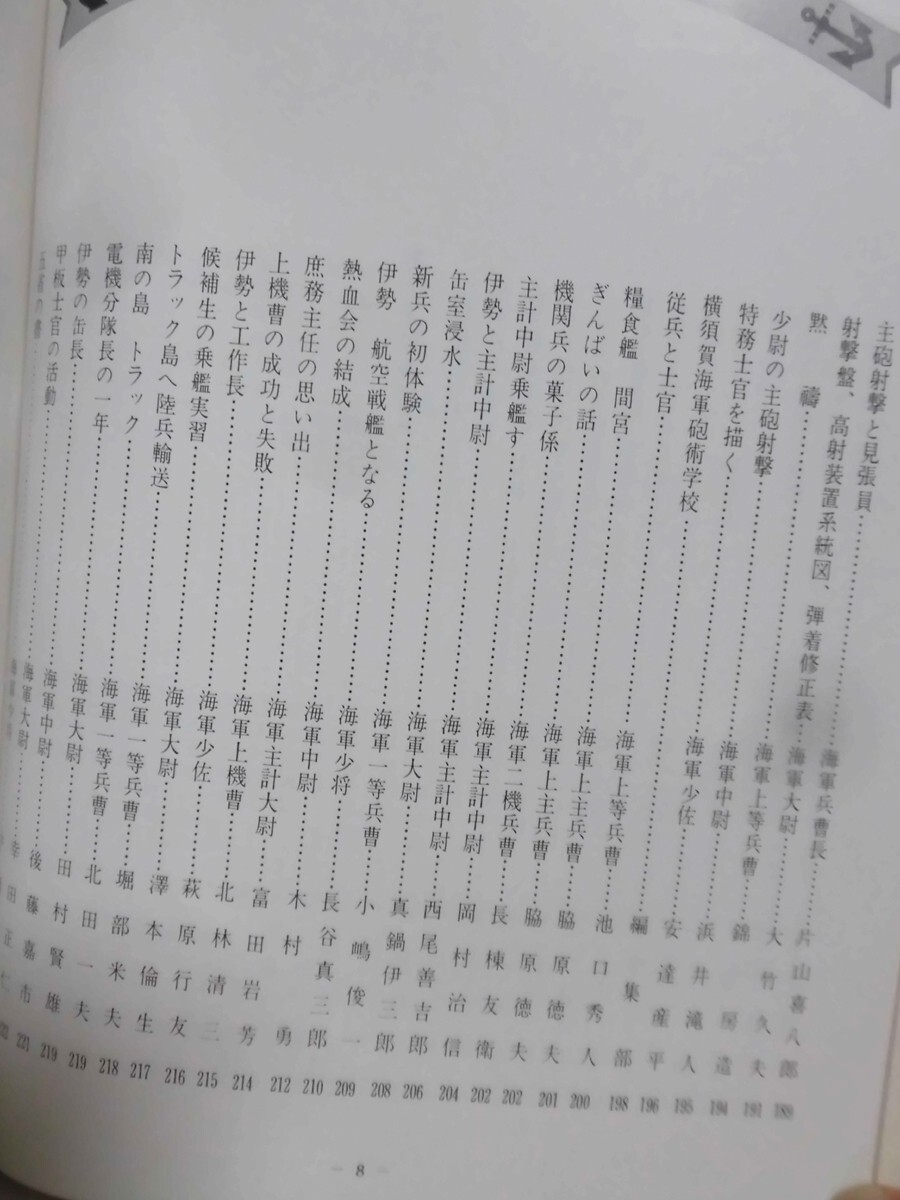 主砲射撃と見張員……海軍兵曹長 片山喜八郎 189
射撃盤、高射装置系統図、弾着修正表……海軍大尉 大竹久夫 191
黙禱……海軍上等兵曹 錦房造 194
少尉の主砲射撃……海軍中尉 浜井滝人 195
特務士官を描く……海軍少佐 安達産平 196
横須賀海軍砲術学校……編集部 198
従兵と士官……海軍上等兵曹 池口秀人 200
糧食艦 間宮……海軍上主兵曹 脇原徳夫 201
ぎんばいの話……海軍上主兵曹 脇原徳夫 202
機関兵の菓子係……海軍二機兵曹 長棟友衛 202
主計中尉乗艦す……海軍主計中尉 岡村治信 204
伊勢と主計中尉……海軍主計中尉 西尾善吉郎 206
缶室浸水……海軍大尉 真鍋伊三郎 208
新兵の初体験……海軍一等兵曹 小嶋俊一 209
伊勢 航空戦艦となる……海軍少将 長谷真三郎 210
熱血会の結成……海軍中尉 木村勇 212
庶務主任の思い出……海軍主計大尉 富田岩芳 214
上機曹の成功と失敗……海軍上機曹 北林清三 215
伊勢と工作長……海軍少佐 萩原行友 216
候補生の乗艦実習……海軍大尉 澤本倫生 217
トラック島へ陸兵輸送……海軍一等兵曹 堀部米夫 218
南の島 トラック……海軍一等兵曹 北田一夫 219
電機分隊長の一年……海軍大尉 田村賢雄 219
伊勢の缶長……海軍中尉 後藤嘉市 221
甲板士官の活動……海軍大尉 幸田正仁 222
— 8 —